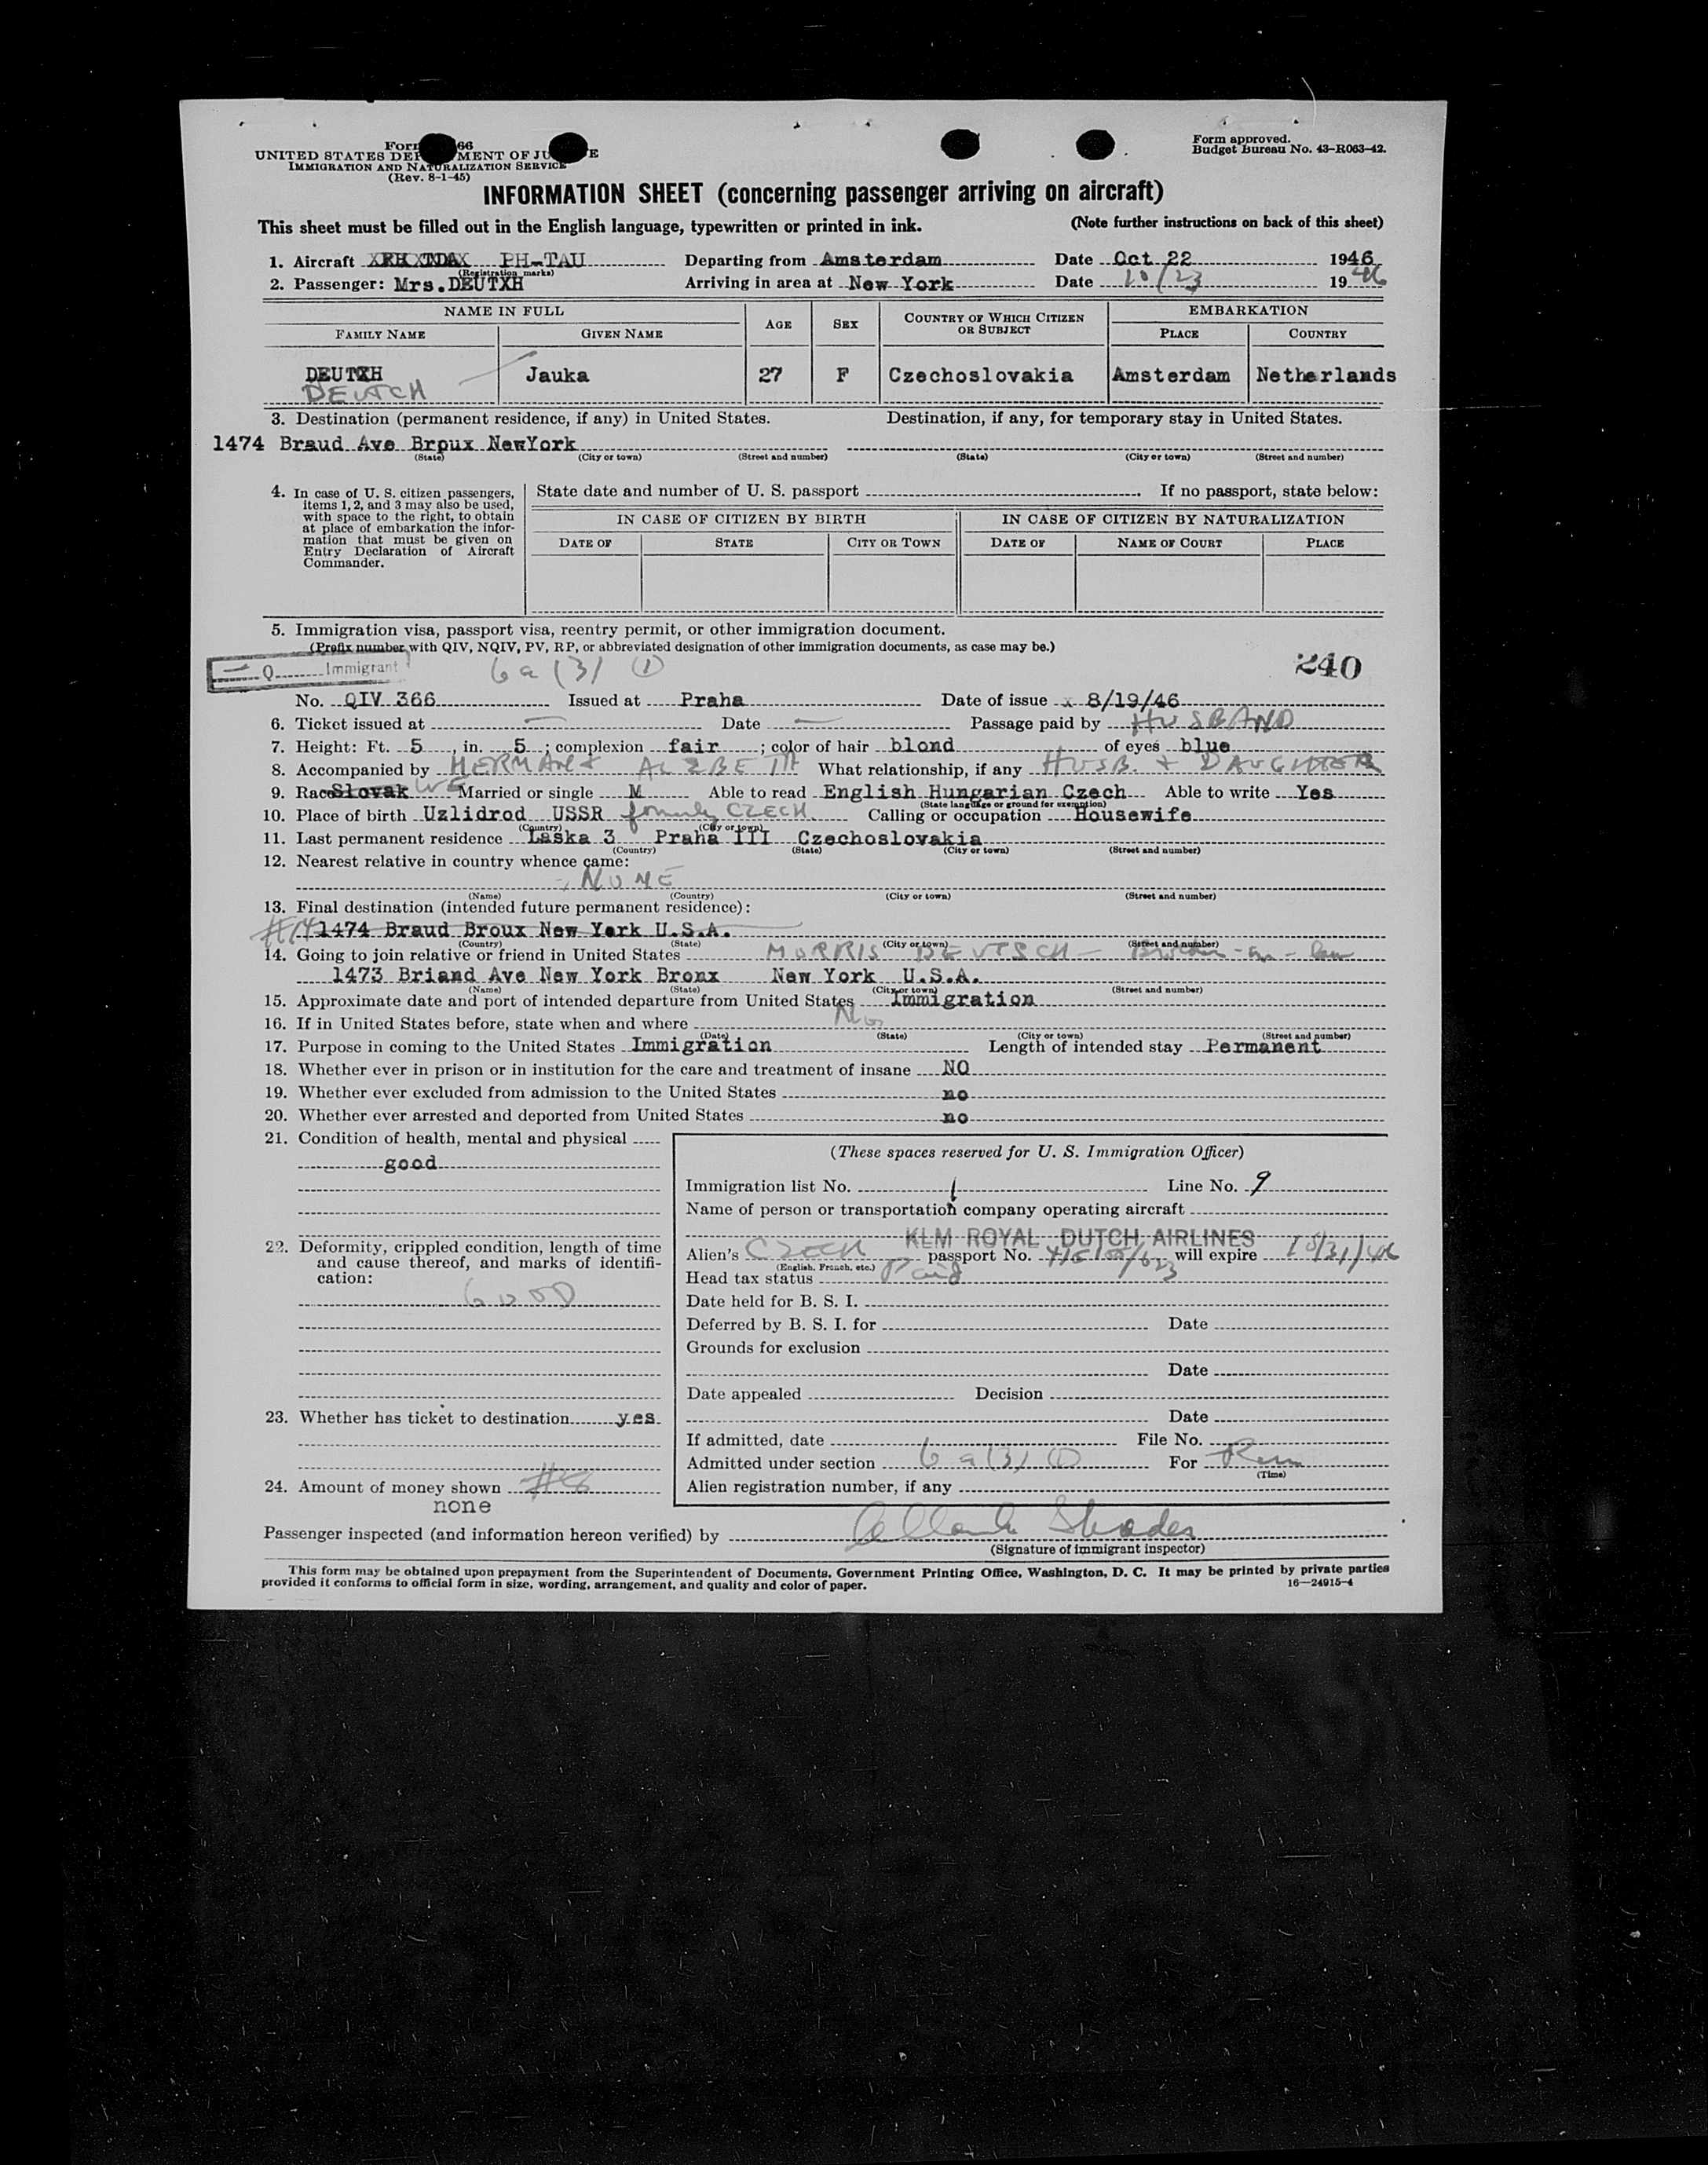 Form approved.
Budget Bureau No. 43-R063-42.
UNITED STATES
IMMIGRATION AND NATURALIZATION SERVICE
(Rev. 8-1-45)
INFORMATION SHEET (concerning passenger arriving on aircraft)
This sheet must be filled out in the English language, typewritten or printed in ink. (Note further instructions on back of this sheet)
1. Aircraft PH-TAU Departing from Amsterdam Date Oct 22 1946
(Registration marks)
2. Passenger: Mrs.DEUTXH Arriving in area at New York Date 10/23 1946
NAME IN FULL AGE SEX COUNTRY OF WHICH CITIZEN OR SUBJECT EMBARKATION
FAMILY NAME GIVEN NAME PLACE COUNTRY
DEUTXH Jauka 27 F Czechoslovakia Amsterdam Netherlands
DEUTCH
3. Destination (permanent residence, if any) in United States. Destination, if any, for temporary stay in United States.
1474 Braud Ave Brpux NewYork
(State) (City or town) (Street and number) (State) (City or town) (Street and number)
4. In case of U. S. citizen passengers, items 1, 2, and 3 may also be used, with space to the right, to obtain at place of embarkation the information that must be given on Entry Declaration of Aircraft Commander.
State date and number of U. S. passport If no passport, state below:
IN CASE OF CITIZEN BY BIRTH IN CASE OF CITIZEN BY NATURALIZATION
DATE OF STATE CITY OR TOWN DATE OF NAME OF COURT PLACE
5. Immigration visa, passport visa, reentry permit, or other immigration document.
(Prefix number with QIV, NQIV, PV, RP, or abbreviated designation of other immigration documents, as case may be.)
Q Immigrant 6 a (3) (1) 240
No. QIV 366 Issued at Praha Date of issue x 8/19/46
6. Ticket issued at — Date — Passage paid by HUSBAND
7. Height: Ft. 5, in. 5; complexion fair; color of hair blond of eyes blue
8. Accompanied by HERMAN & ALZBETH What relationship, if any HUSB. + DAUGHTER
9. Race Slovak Married or single M Able to read English Hungarian Czech Able to write Yes
(State language or ground for exemption)
10. Place of birth Uzlidrod USSR formerly CZECH. Calling or occupation Housewife
(Country) (City or town)
11. Last permanent residence Laska 3 Praha III Czechoslovakia
(Country) (State) (City or town) (Street and number)
12. Nearest relative in country whence came:
NONE
(Name) (Country) (City or town) (Street and number)
13. Final destination (intended future permanent residence):
#14 1474 Braud Broux New Yerk U.S.A.
(Country) (State) (City or town) (Street and number)
14. Going to join relative or friend in United States MORRIS DEUTSCH - Brother-in-law
1473 Briand Ave New York Bronx New York U.S.A.
(Name) (State) (City or town) (Street and number)
15. Approximate date and port of intended departure from United States Immigration
16. If in United States before, state when and where No
(Date) (State) (City or town) (Street and number)
17. Purpose in coming to the United States Immigration Length of intended stay Permanent
18. Whether ever in prison or in institution for the care and treatment of insane NO
19. Whether ever excluded from admission to the United States no
20. Whether ever arrested and deported from United States no
21. Condition of health, mental and physical
good
22. Deformity, crippled condition, length of time and cause thereof, and marks of identification:
GOOD
23. Whether has ticket to destination yes
24. Amount of money shown
none
(These spaces reserved for U. S. Immigration Officer)
Immigration list No. 1 Line No. 9
Name of person or transportation company operating aircraft
KLM ROYAL DUTCH AIRLINES
Alien's CZECH passport No. will expire 10/31/46
(English, French, etc.)
Head tax status Paid
Date held for B. S. I.
Deferred by B. S. I. for Date
Grounds for exclusion
Date
Date appealed Decision
Date
If admitted, date File No.
Admitted under section 6 a (3) (1) For
(Time)
Alien registration number, if any
Passenger inspected (and information hereon verified) by
(Signature of immigrant inspector)
This form may be obtained upon prepayment from the Superintendent of Documents, Government Printing Office, Washington, D. C. It may be printed by private parties
provided it conforms to official form in size, wording, arrangement, and quality and color of paper. 16—24915-4